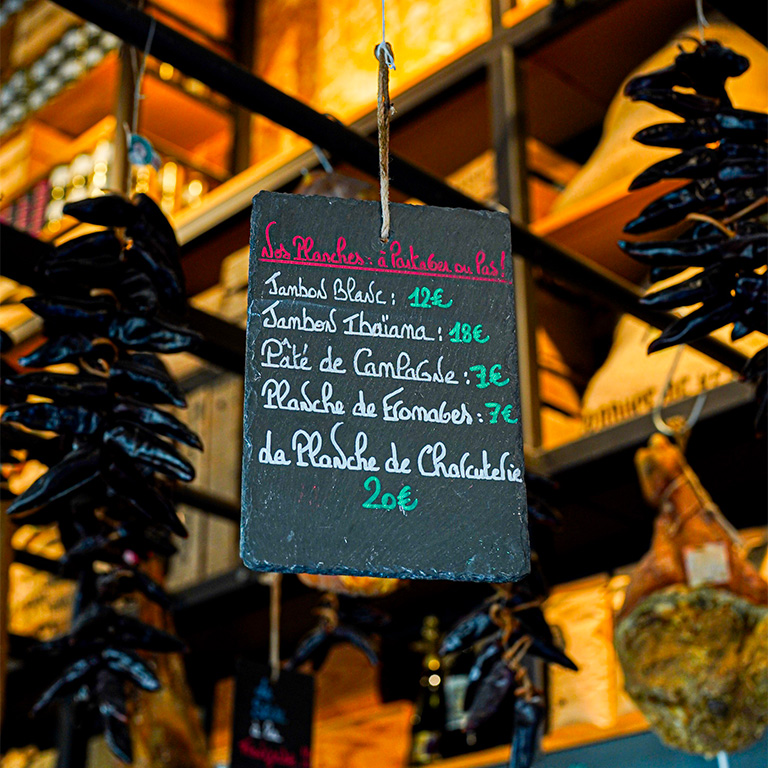 Nos Planches : à Partager ou Pas !
Jambon Blanc : 12€
Jambon Ibaïana : 18€
Pâté de Campagne : 7€
Planche de Fromages : 7€
La Planche de Charcuterie
20€